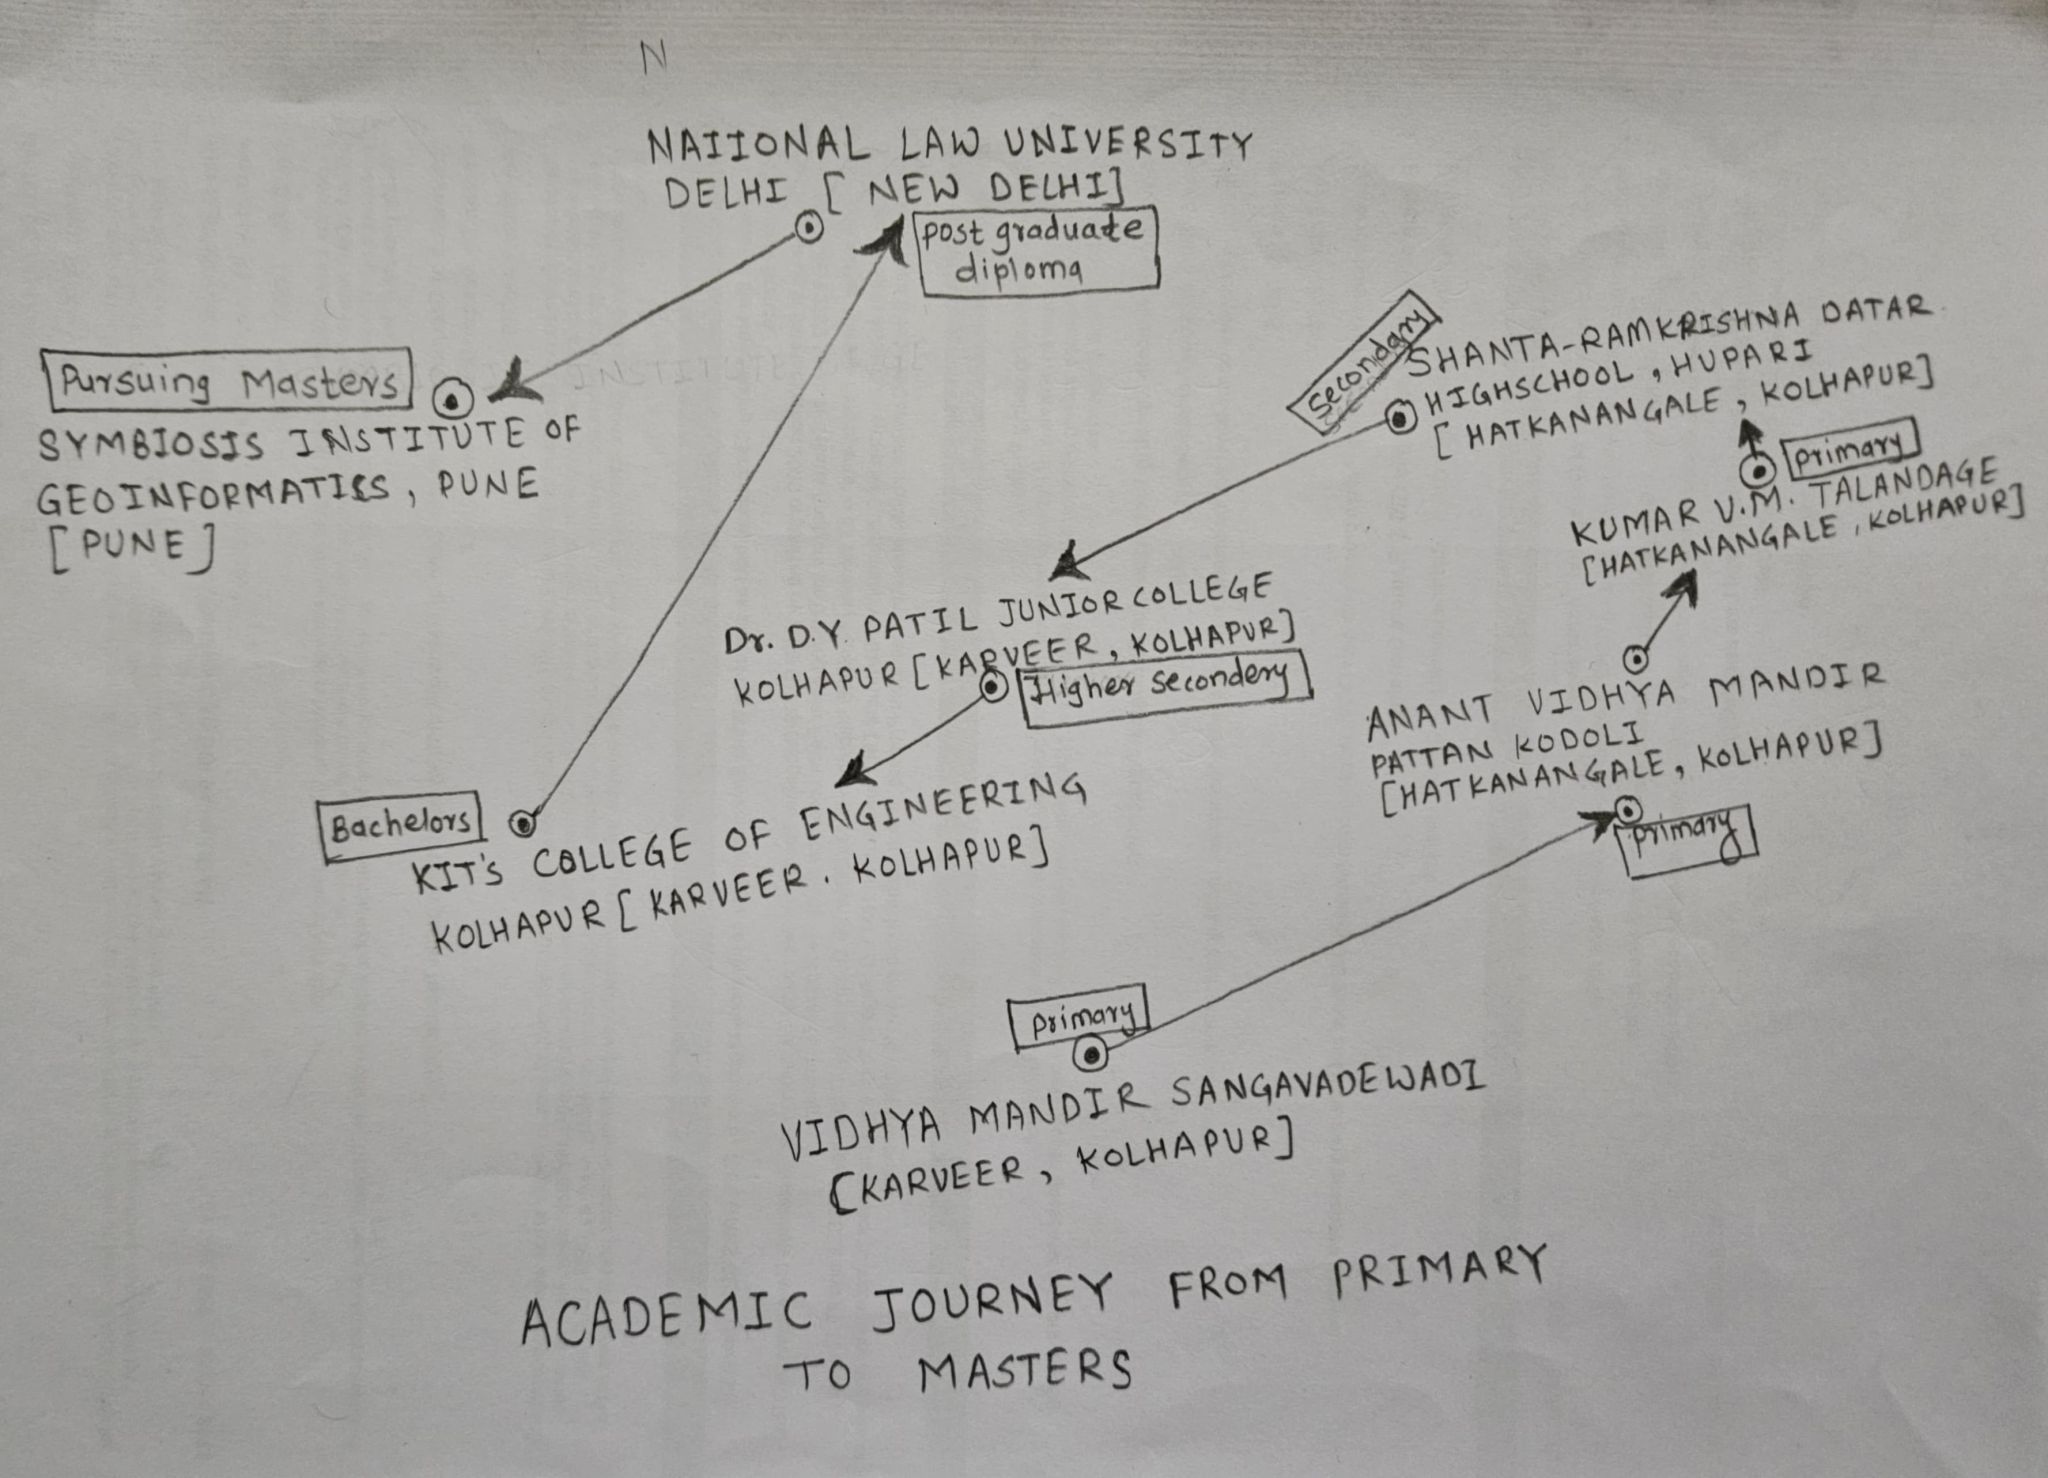 N
NATIONAL LAW UNIVERSITY
DELHI [ NEW DELHI]
post graduate
diploma
Pursuing Masters
SYMBIOSIS INSTITUTE OF
GEOINFORMATICS, PUNE
[PUNE]
Secondary
SHANTA-RAMKRISHNA DATAR
HIGHSCHOOL, HUPARI
[HATKANANGALE, KOLHAPUR]
primary
KUMAR V.M. TALANDAGE
[HATKANANGALE, KOLHAPUR]
Dr. D.Y. PATIL JUNIOR COLLEGE
KOLHAPUR [KARVEER, KOLHAPUR]
Higher secondery
ANANT VIDHYA MANDIR
PATTAN KODOLI
[HATKANANGALE, KOLHAPUR]
primary
Bachelors
KIT'S COLLEGE OF ENGINEERING
KOLHAPUR [KARVEER. KOLHAPUR]
primary
VIDHYA MANDIR SANGAVADEWADI
[KARVEER, KOLHAPUR]
ACADEMIC JOURNEY FROM PRIMARY
TO MASTERS